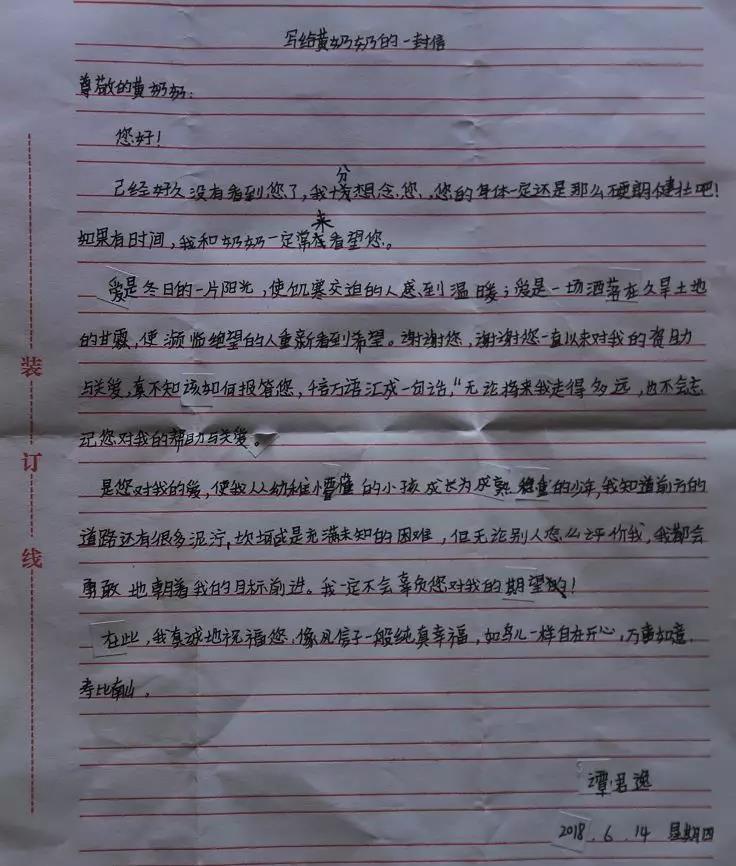 写给黄奶奶的一封信
尊敬的黄奶奶:
您好!
已经好久没有看到您了,我十分想念您,您的身体一定还是那么硬朗健壮吧!
如果有时间,我和奶奶一定常来看望您。
爱是冬日的一片阳光,使饥寒交迫的人感到温暖;爱是一场洒落在久旱土地
的甘霖,使濒临绝望的人重新看到希望。谢谢您,谢谢您一直以来对我的资助
与关爱,真不知该如何报答您,千言万语汇成一句话,“无论将来我走得多远,也不会忘
记您对我的帮助与关爱。
是您对我的爱,使我从幼稚懵懂的小孩成长为成熟稳重的少年,我知道前方的
道路还有很多泥泞,坎坷或是充满未知的困难,但无论别人怎么评价我,我都会
勇敢地朝着我的目标前进。我一定不会辜负您对我的期望的!
在此,我真诚地祝福您,像风信子一般纯真幸福,如鸟儿一样自在开心,万事如意,
寿比南山。
谭君逸
2018.6.14 星期四
装
订
线